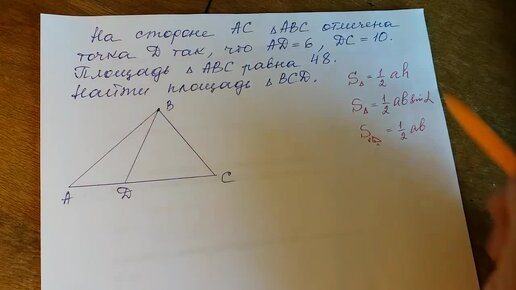 На стороне AC △ABC отмечена
точка D так, что AD=6, DC=10.
Площадь △ABC равна 48.
Найти площадь △BCD.
S△ = 1/2 ah
S△ = 1/2 ab sin α
S = 1/2 ab
B
A
D
C